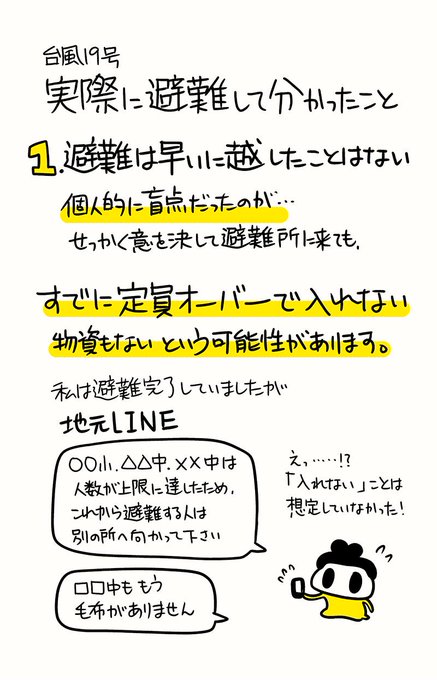 台風19号
実際に避難して分かったこと
1.避難は早いに越したことはない
個人的に盲点だったのが…
せっかく意を決して避難所に来ても、
すでに定員オーバーで入れない
物資もないという可能性があります。
私は避難完了していましたが
地元LINE
〇〇小、△△中、××中は
人数が上限に達したため、
これから避難する人は
別の所へ向かって下さい
えっ……!?
「入れない」ことは
想定していなかった!
□□中も もう
毛布がありません